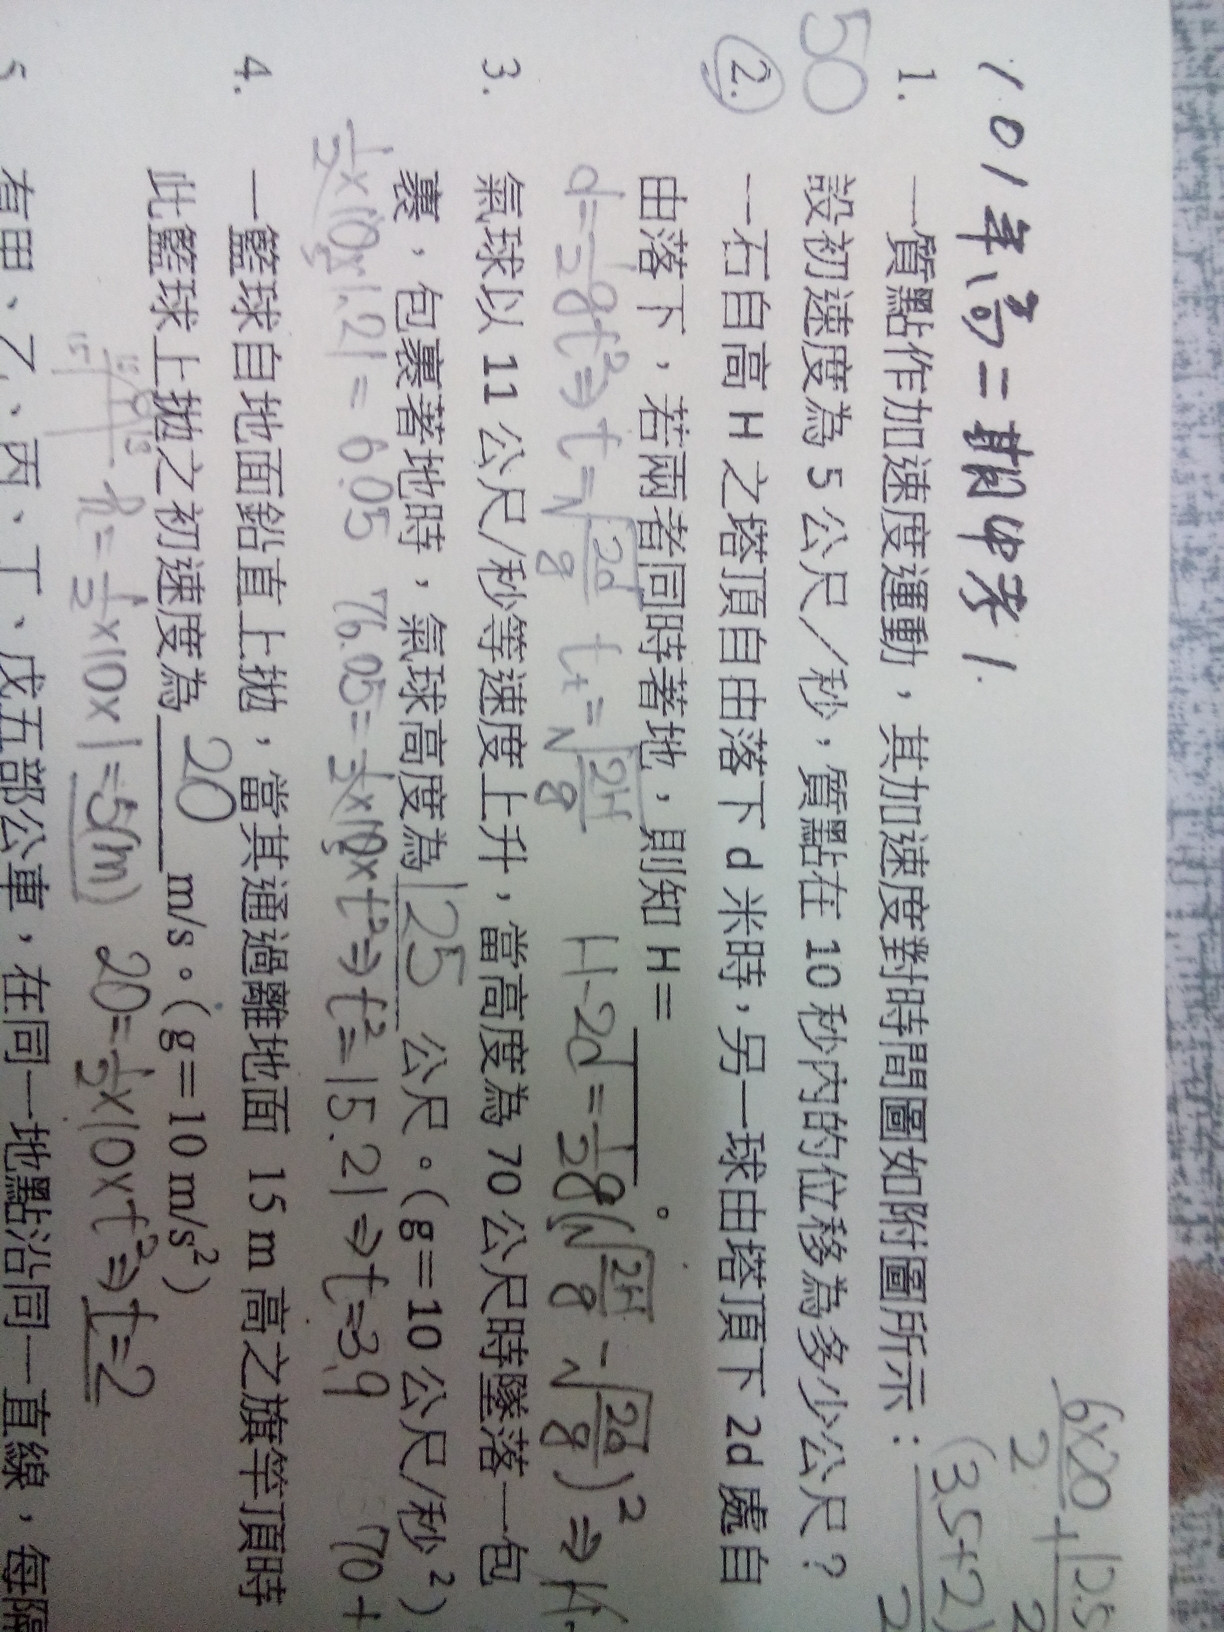 101年高二期中考1.
6×20/2 + 12.5/2
(3.5+2)
2
1. 一質點作加速度運動，其加速度對時間圖如附圖所示：
50 設初速度為 5 公尺／秒，質點在 10 秒內的位移為多少公尺？
2. 一石自高 H 之塔頂自由落下 d 米時，另一球由塔頂下 2d 處自
由落下，若兩者同時著地，則知 H＝____。
d=1/2gt²⇒t=√(2d/g) t₂=√(2H/g) H-2d=1/2g(√(2H/g)-√(2d/g))²⇒H-
3. 氣球以 11 公尺/秒等速度上升，當高度為 70 公尺時墜落一包
裹，包裹著地時，氣球高度為 125 公尺。(g＝10 公尺/秒²)
1/2×10×1.21=6.05 76.05=1/2×10×t²⇒t²=15.21⇒t=3.9 70+
4. 一籃球自地面鉛直上拋，當其通過離地面 15 m 高之旗竿頂時
此籃球上拋之初速度為 20 m/s。(g＝10 m/s²)
h=1/2×10×1=5(m) 20=1/2×10×t²⇒t=2
5 有甲、乙、丙、丁、戊五部公車，在同一地點沿同一直線，每隔